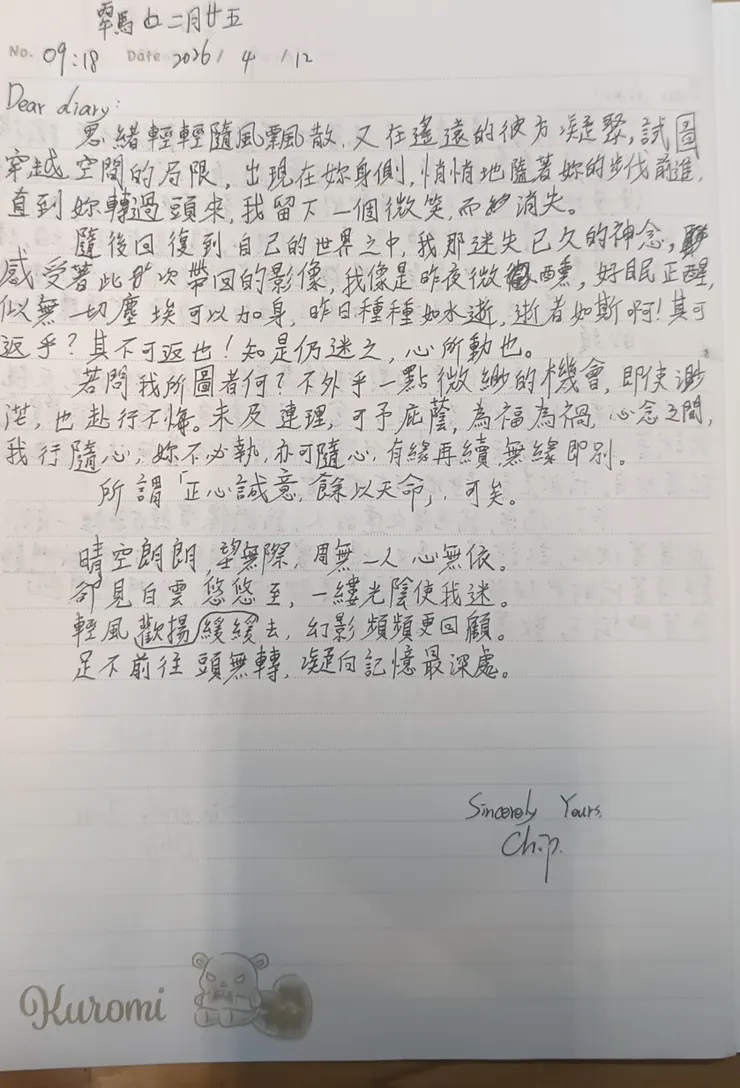 馬年二月廿五
No. 09:18 Date 2026 / 4 / 12
Dear diary:
思緒輕輕隨風飄散,又在遙遠的彼方凝聚,試圖
穿越空間的局限,出現在妳身側,悄悄地隨著妳的步伐前進,
直到妳轉過頭來,我留下一個微笑,而消失。
隨後回復到自己的世界之中,我那迷失已久的神念,
感受著此次帶回的影像,我像是昨夜微醺,好眠正醒,
似無一切塵埃可以加身,昨日種種如水逝,逝者如斯啊!其可
返乎?其不可返也!知是仍迷之,心所動也。
若問我所圖者何?不外乎一點微緲的機會,即使渺
茫,也赴行不悔。未及連理,可予庇蔭,為福為禍,心念之間,
我行隨心,妳不必執,亦可隨心,有緣再續,無緣即別。
所謂「正心誠意,餘以天命」,可矣。
晴空朗朗望無際,周無一人心無依。
卻見白雲悠悠至,一縷光陰使我迷。
輕風歡揚緩緩去,幻影頻頻更回顧。
足不前往頭無轉,凝向記憶最深處。
Sincerely Yours,
Chip.
Kuromi